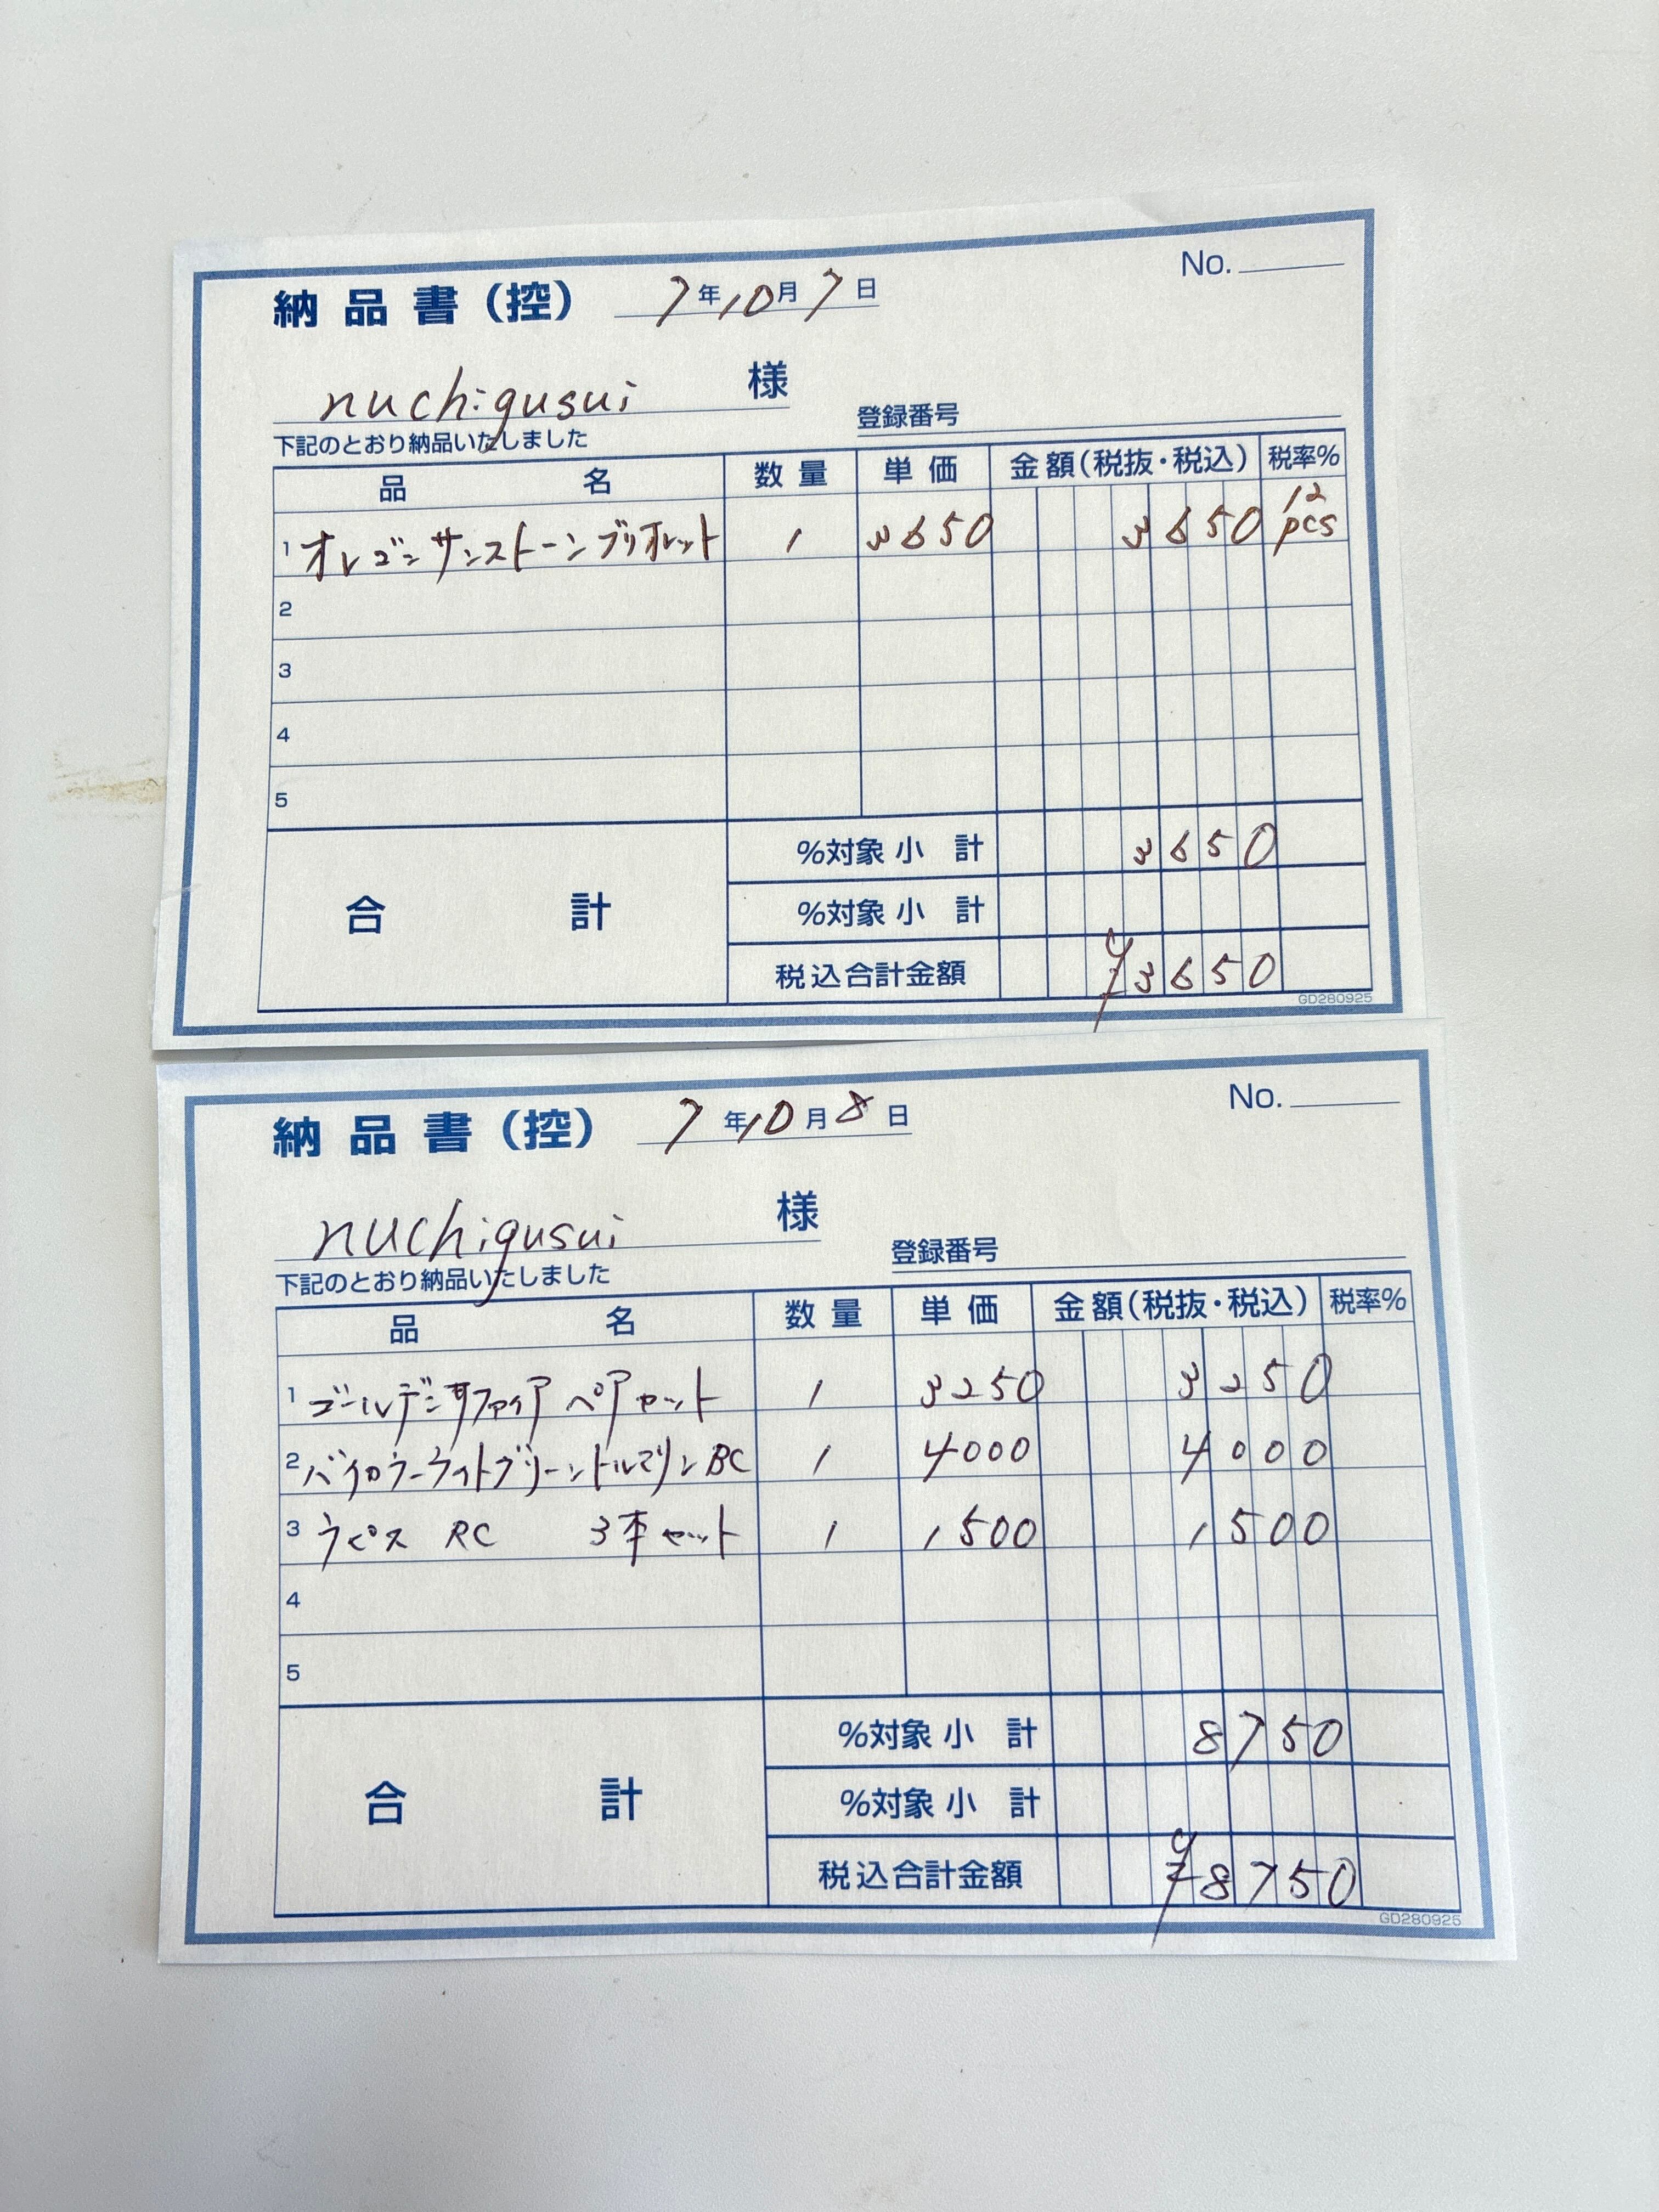 納品書(控) 7年10月7日 No.
nuchigusui 様
登録番号
下記のとおり納品いたしました
品名 数量 単価 金額(税抜・税込) 税率%
1 オレゴンサンストーンブリオレット 1 3650 3650 12pcs
2
3
4
5
%対象小計 3650
合計 %対象小計
税込合計金額 ¥3650
GD280925
納品書(控) 7年10月8日 No.
nuchigusui 様
登録番号
下記のとおり納品いたしました
品名 数量 単価 金額(税抜・税込) 税率%
1 ゴールデンサファイア ペアセット 1 3250 3250
2 バイカラーライトグリーントルマリンBC 1 4000 4000
3 ラピス RC 3本セット 1 1500 1500
4
5
%対象小計 8750
合計 %対象小計
税込合計金額 ¥8750
GD280925